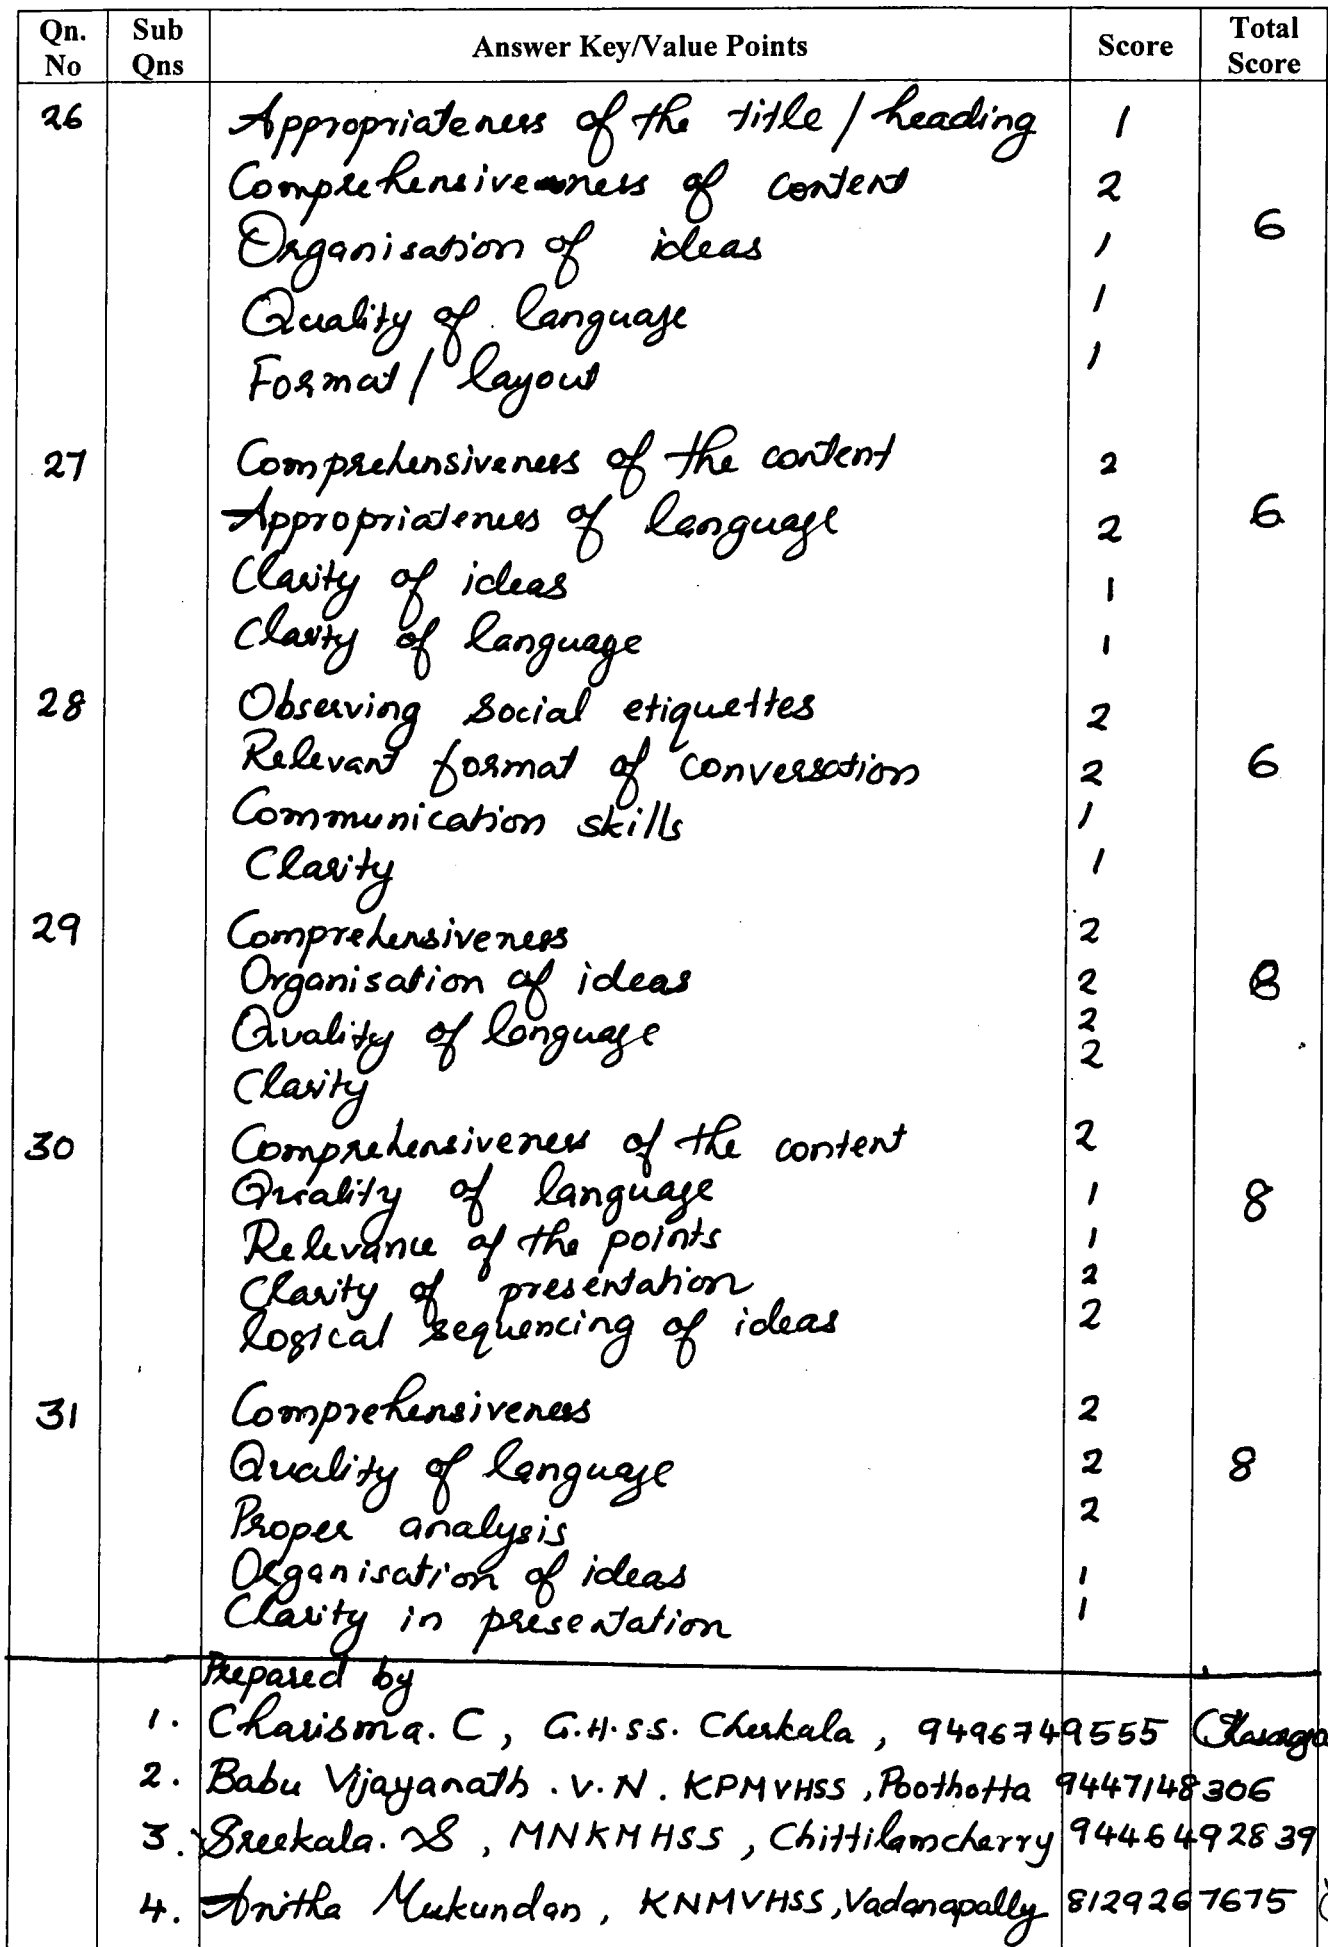 Qn. No Sub Qns Answer Key/Value Points Score Total Score
26 Appropriateness of the title / heading 1
Comprehensiveness of content 2
6
Organisation of ideas 1
Quality of language 1
Format / layout 1
27 Comprehensiveness of the content 2
Appropriateness of language 2 6
Clarity of ideas 1
Clarity of language 1
28 Observing social etiquettes 2
Relevant format of conversation 2 6
Communication skills 1
Clarity 1
29 Comprehensiveness 2
Organisation of ideas 2 8
Quality of language 2
Clarity 2
30 Comprehensiveness of the content 2
Quality of language 1 8
Relevance of the points 1
Clarity of presentation 2
logical sequencing of ideas 2
31 Comprehensiveness 2
Quality of language 2 8
Proper analysis 2
Organisation of ideas 1
Clarity in presentation 1
Prepared by
1. Charisma. C, G.H.SS. Cherkala, 9496749555
2. Babu Vijayanath. V.N. KPMVHSS, Poothotta 9447148306
3. Sreekala. S, MNKMHSS, Chittilamcherry 9446492839
4. Anitha Mukundan, KNMVHSS, Vadanapally 8129267675